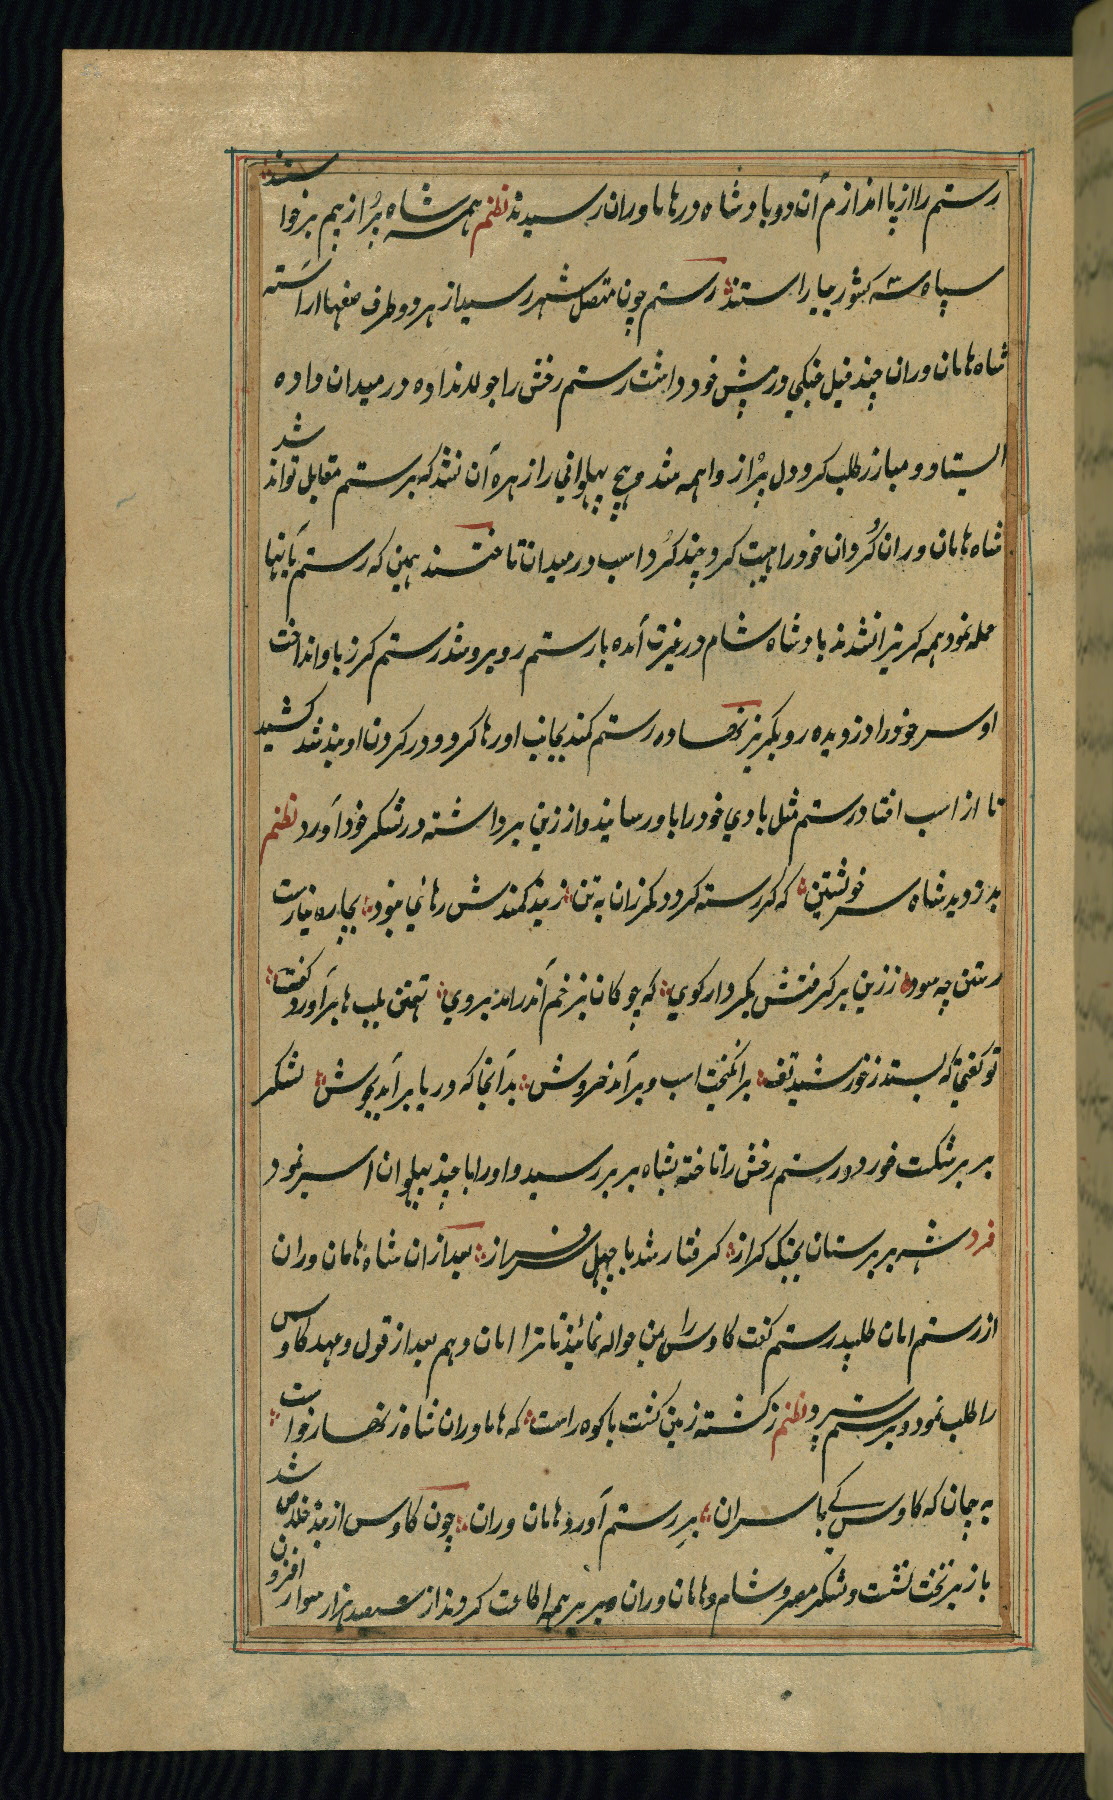 رستم را از پا اندازم آن دو بادشاه در هاماوران رسیدند نظم همه شاه پر از بیم برخواستند
سپاه سه کشور بیاراستند رستم چون متصل شهر رسید از هر دو طرف صفها آراسته
شاه هامان وران چند فیل جنکی در پیش خود داشت رستم رخش را جولان داده در میدان
ایستاد و مبارز طلب کرد دل پر از واهمه شد هیچ پهلوانی را زهره آن نشد که بر رستم مقابل تواند شد
شاه هامان وران کردان خود را کرد چند کرد اسب در میدان تاختند همین که رستم بآنها
حمله نمود همه کریزان شدند بادشاه شام در غیرت آمده با رستم روبرو شد رستم کرز باو انداخت
او سر خود را دزدیده رو بکریز نهاده رستم کمند بجانب او رها کرد و در کردن او بند شد کشید
تا از اسب افتاد رستم مثل بادی خود را باو رسانید و از زین برداشته در لشکر خود آورد نظم
بدزدید شاه سر خویشتن که کر رسته کردد کرزان به تن ز بند کمندش رهائی نبود بچاره نیارست
رستن چه سود ز زین بر کرفتش بکردار کوی که چوکان بزخم اندر آمد بروی تهمتن بلب ها برآورد کفت
تو کفتی که بستد ز خورشید تف برانکیخت اسب و برآمد خروش بدآنجا که دریا برآمد بجوش لشکر
بربر شکست خورد رستم رخش را تاخته بشاه بربر رسید و او را با چند پهلوان اسیر نمود
فرد شه بربرستان بجنک کراز کرفتار شد با چهل سرفراز بعد از آن شاه هامان وران
از رستم امان طلبید رستم کفت کاوس را بمن حواله نمائید تا ترا امان دهم بعد از قول و عهد کاوس
را طلب نمود و برستم سپرد نظم ز کشته زمین کشت با کوه راست که هاماوران شاه زنهار خواست
به چنان که کاوس کی با سران بر رستم آورد هامان وران چون کاوس از بند خلاص شد
باز بر تخت نشست و لشکر مصر و شام و هامان وران و بربر همه اطاعت کردند از سیصد هزار سوار افزون